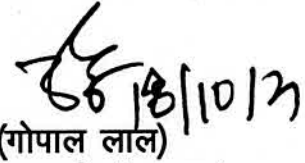 18/10/21
(गोपाल लाल)